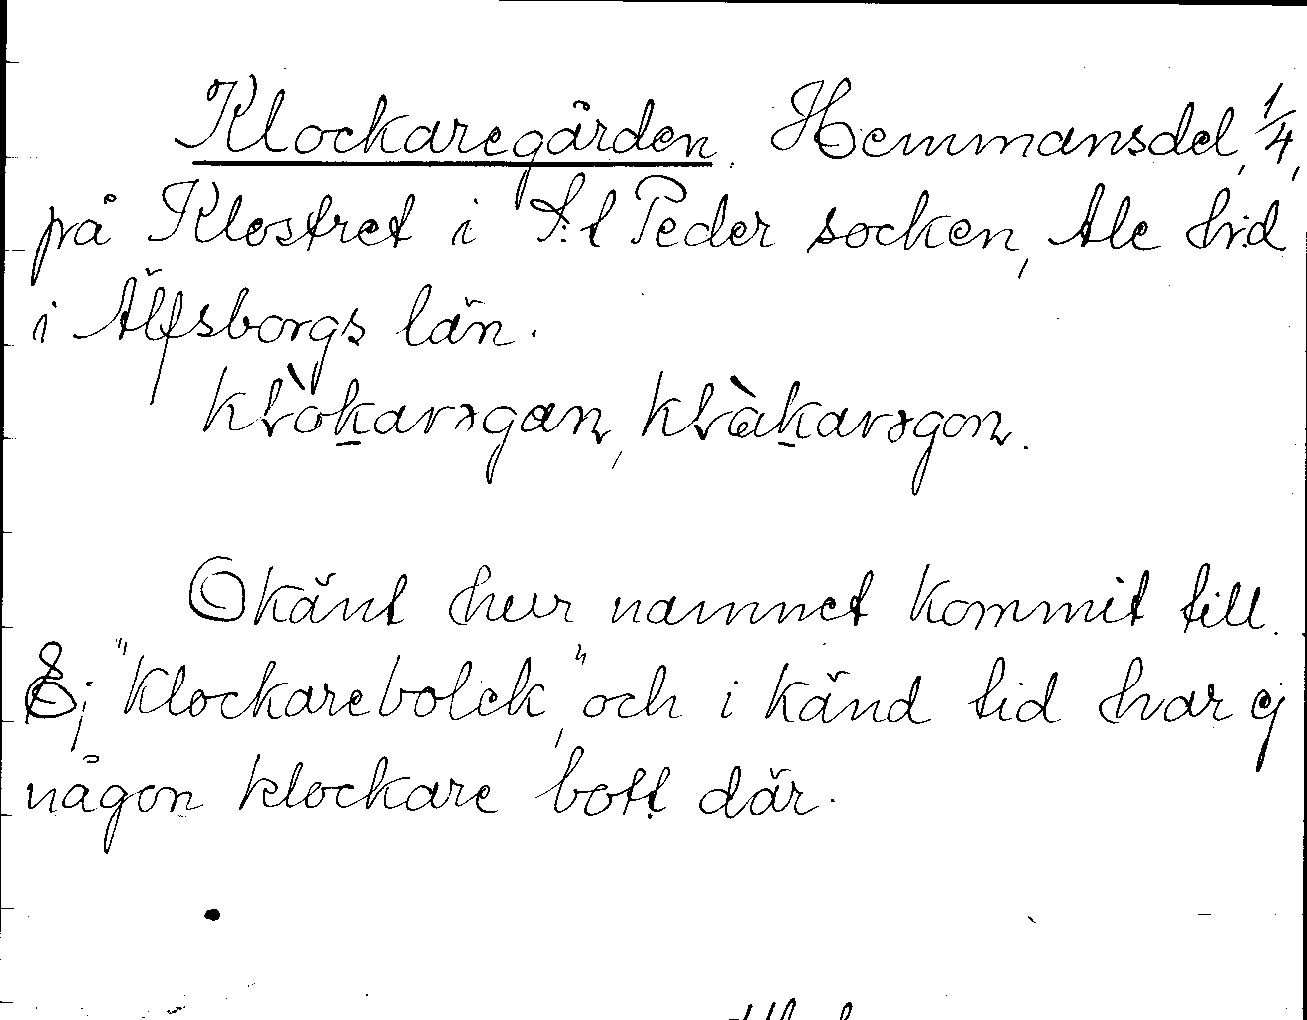 Klockaregården. Hemmansdel, 1/4,
på Klostret i S:t Peder socken, Ale h:d
i Älfsborgs län.
Okänt hur namnet kommit till.
Ej "klockarebolek", och i känd tid har ej
någon klockare bott där.